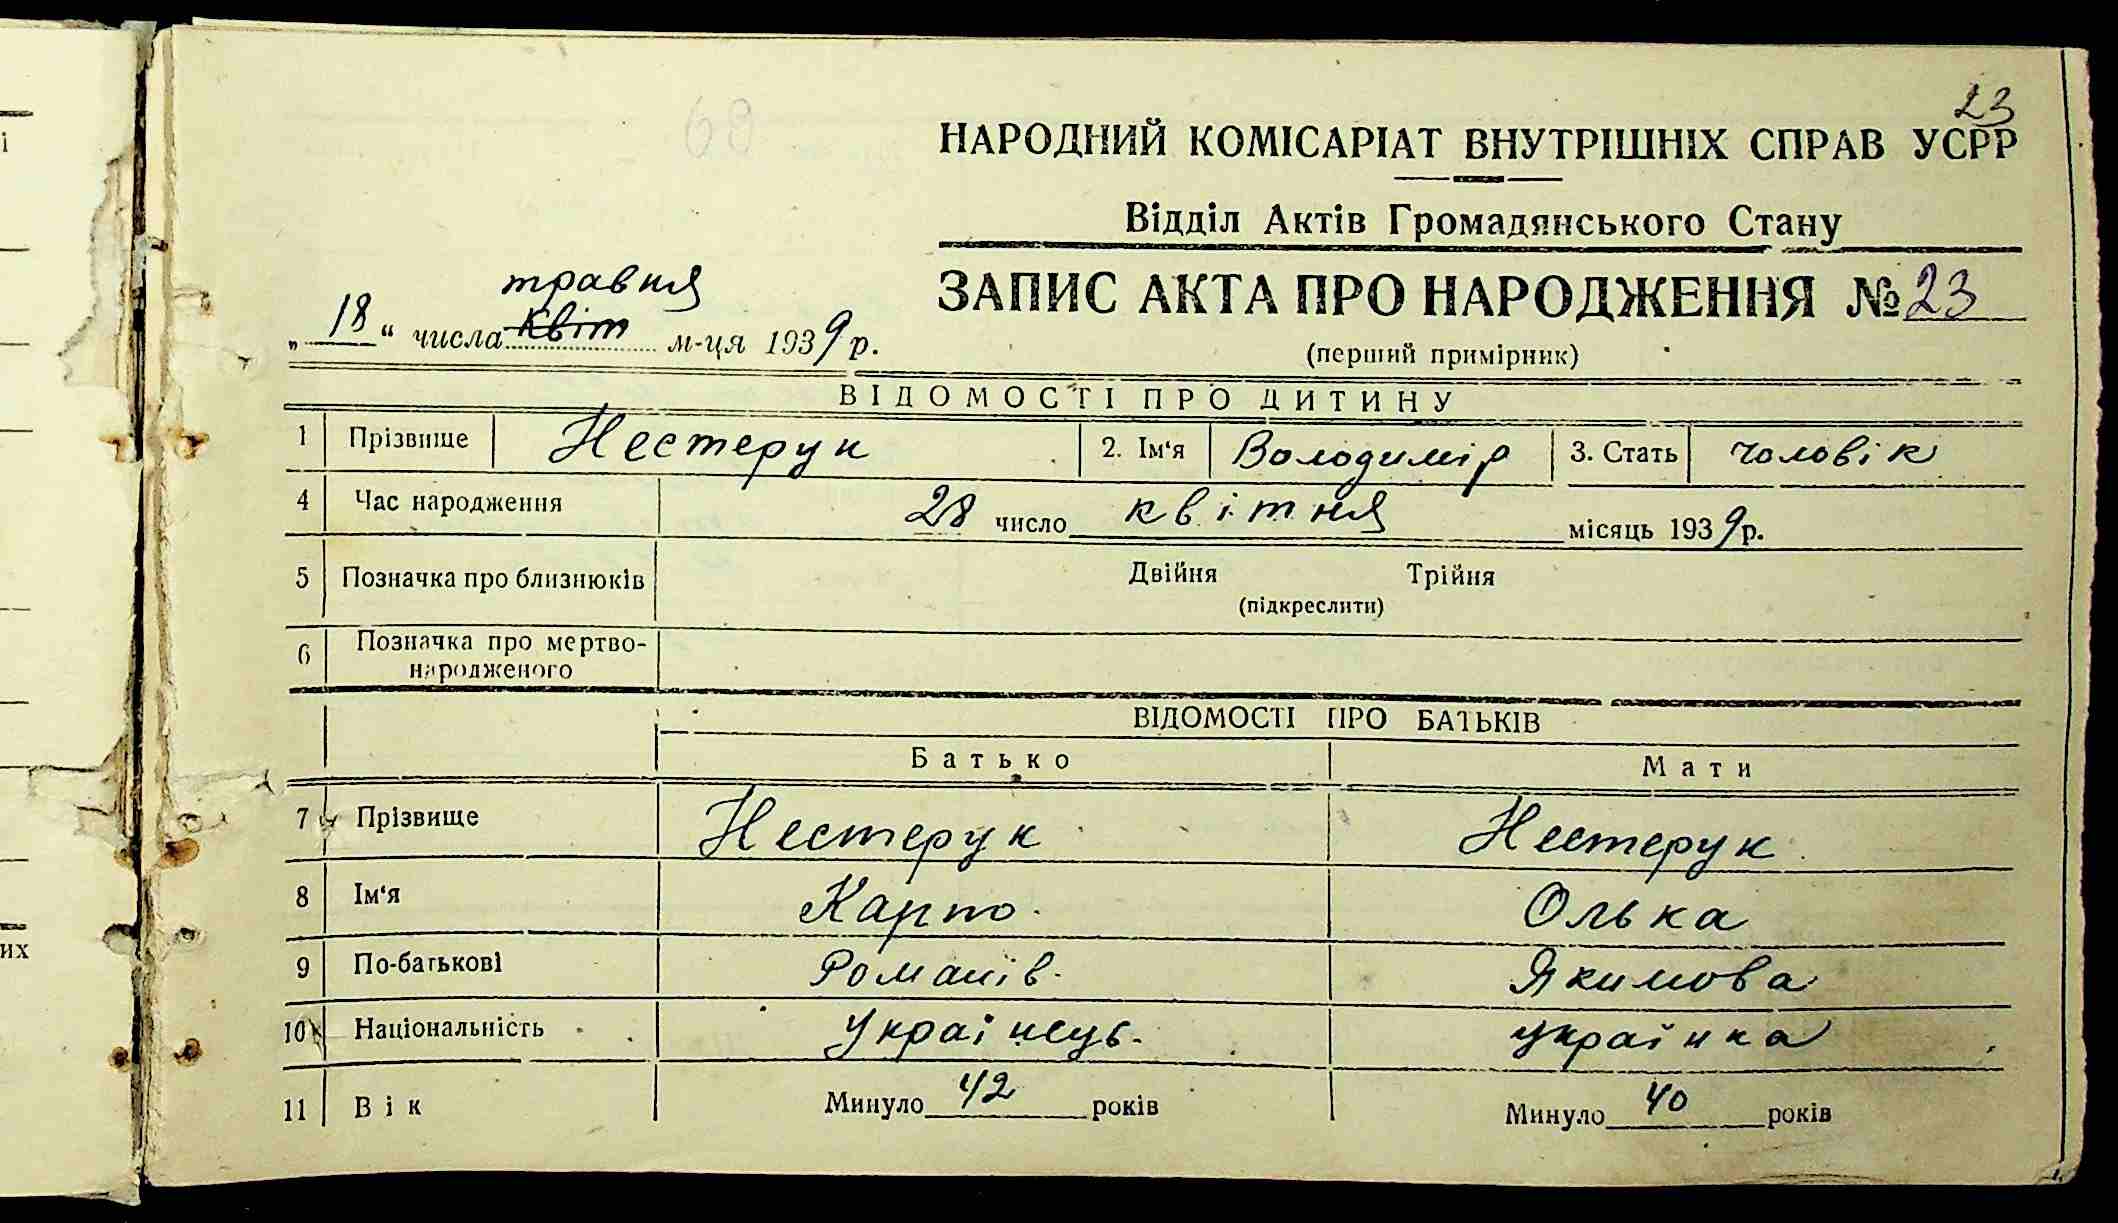 23
69
НАРОДНИЙ КОМІСАРІАТ ВНУТРІШНІХ СПРАВ УСРР
Відділ Актів Громадянського Стану
ЗАПИС АКТА ПРО НАРОДЖЕННЯ № 23
(перший примірник)
травня
„ 18 “ числа квіт м-ця 1939 р.
ВІДОМОСТІ ПРО ДИТИНУ
1 Прізвище Нестерук 2. Ім‘я Володимір 3. Стать чоловік
4 Час народження 28 число квітня місяць 1939 р.
5 Позначка про близнюків Двійня Трійня
(підкреслити)
6 Позначка про мертво-
народженого
ВІДОМОСТІ ПРО БАТЬКІВ
Батько Мати
7 Прізвище Нестерук Нестерук
8 Ім‘я Карпо Олька
9 По-батькові Романів Якимова
10 Національність Українець українка
11 Вік Минуло 42 років Минуло 40 років
і
их